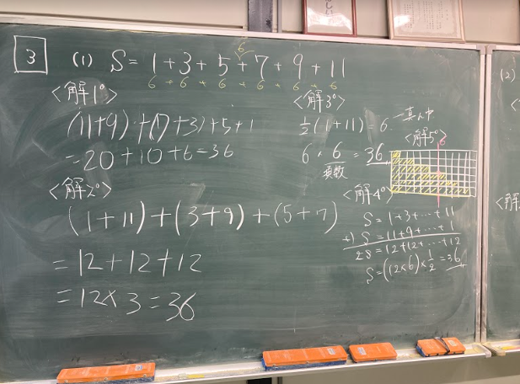 3 (1) S = 1+3+5+7+9+11
6
6 + 6 + 6 + 6 + 6 + 6
<解1°>
(11+9)+(7+3)+5+1
=20+10+6=36
<解2°>
(1+11)+(3+9)+(5+7)
=12+12+12
=12×3=36
<解3°>
1/2(1+11) 6
6・6=36
<解5°>
<解4°>
S=1+3+…+11
+) S=11+9+…+1
2S=12+12+…+12
S=(12×6)×1/2=36
(2)